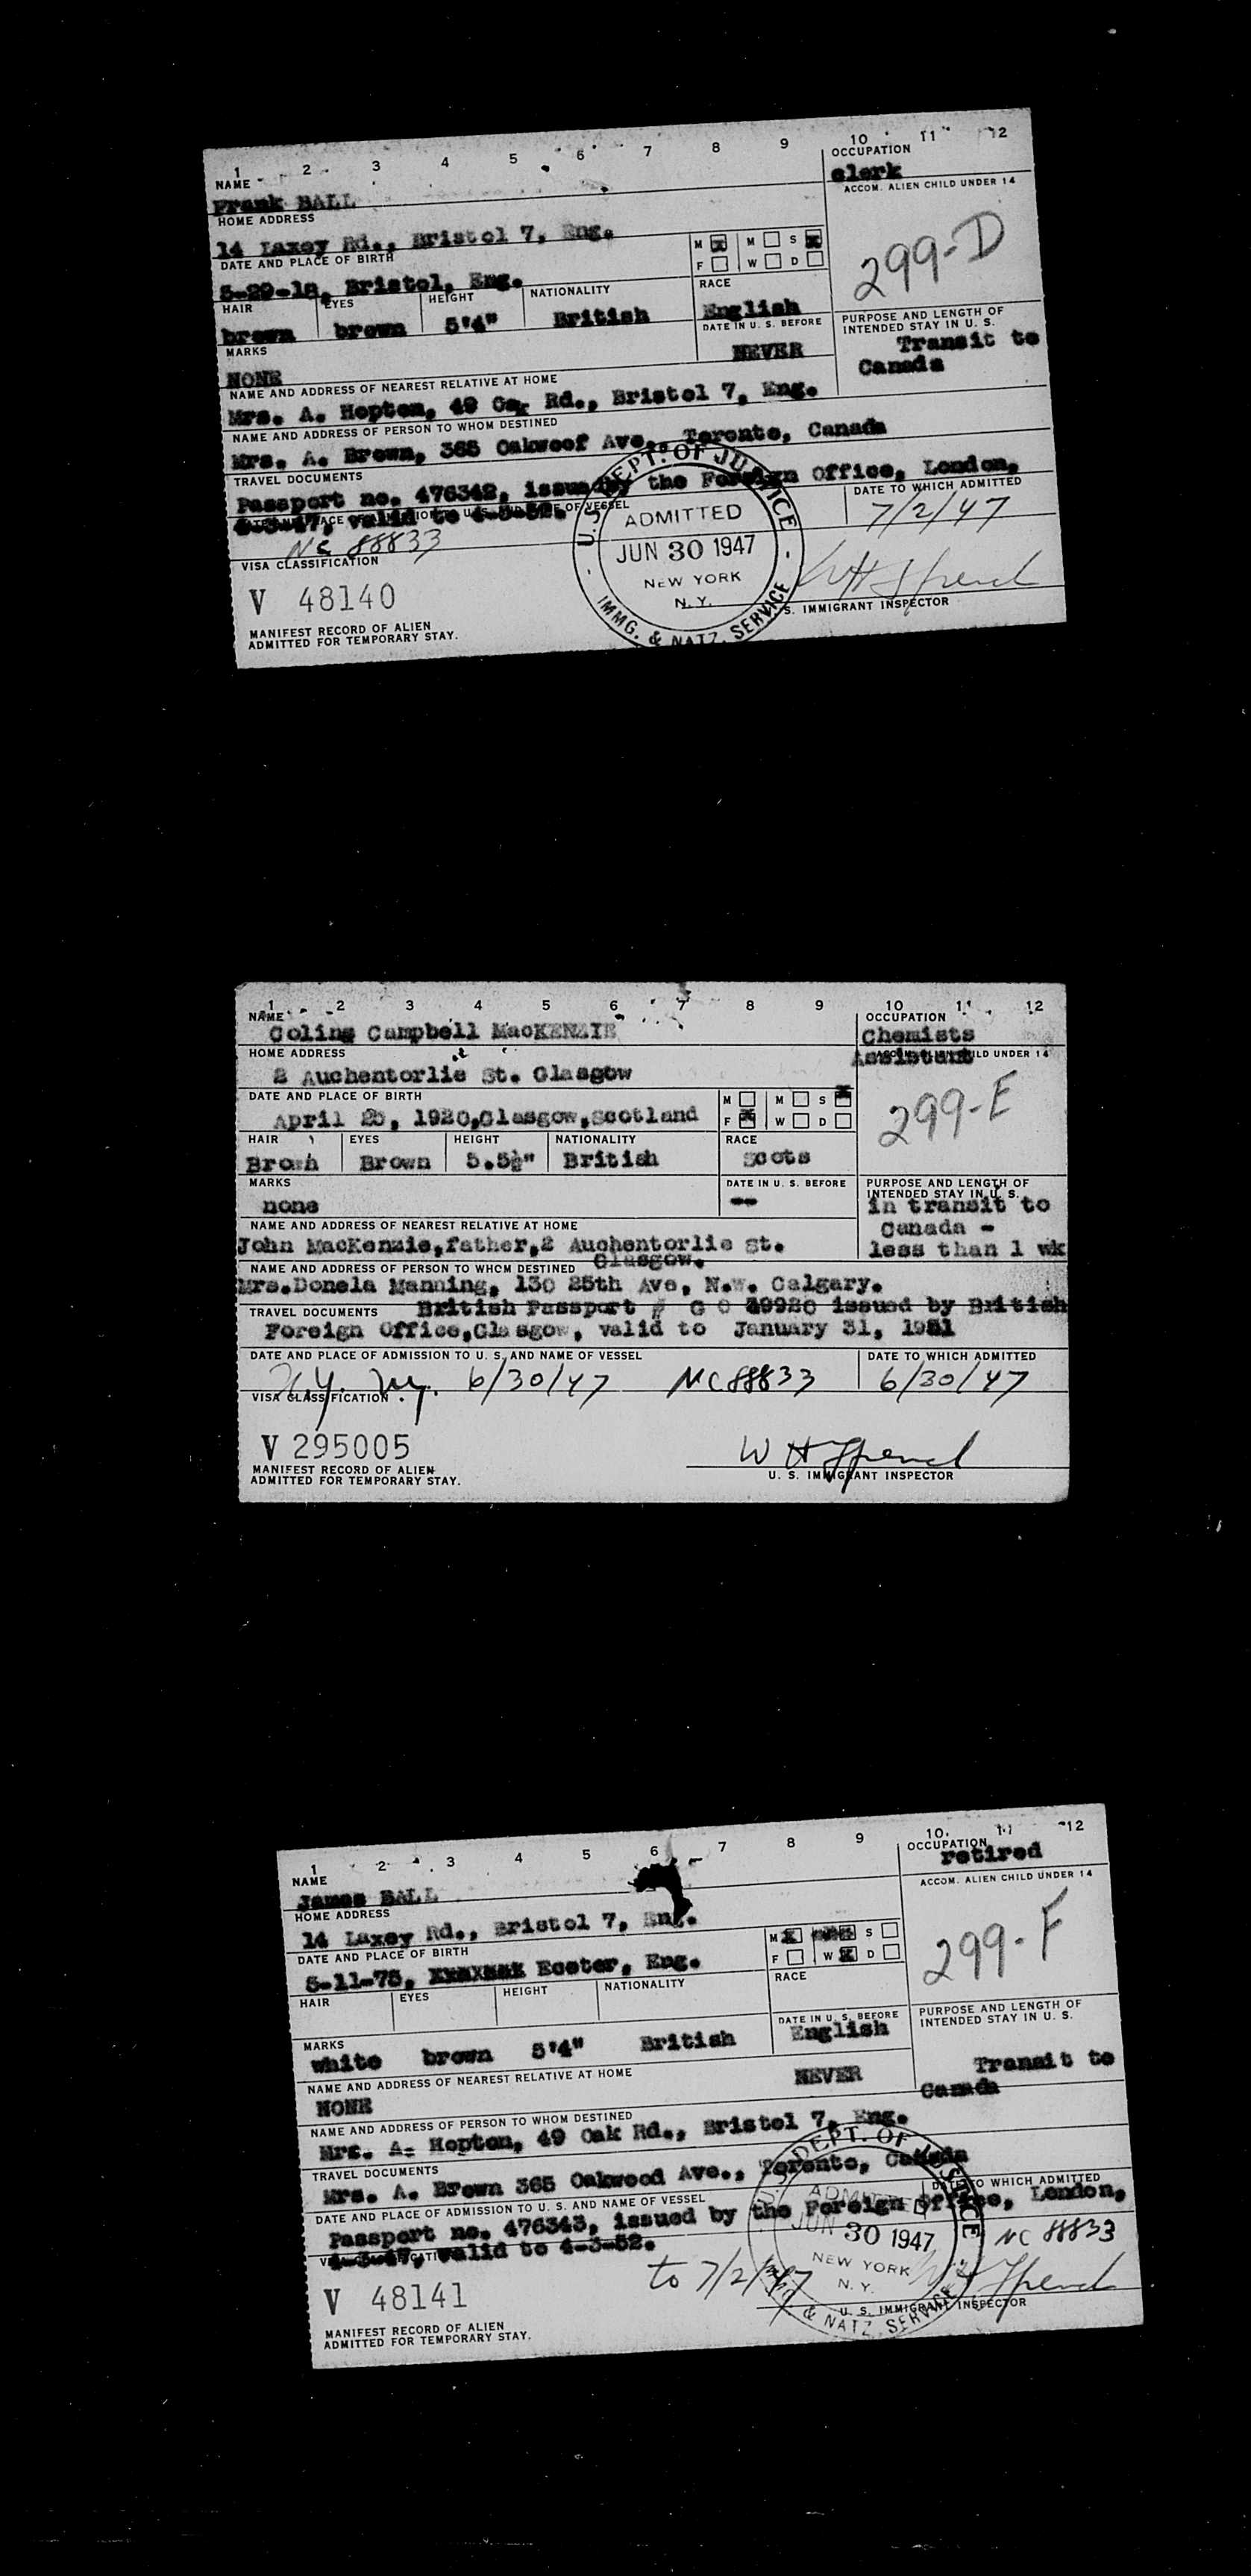 1 2 3 4 5 6 7 8 9 10 11 12
NAME OCCUPATION
Frank BALL clerk
HOME ADDRESS ACCOM. ALIEN CHILD UNDER 14
14 Laxey Rd., Bristol 7, Eng.
M M S
DATE AND PLACE OF BIRTH F W D
5-29-18, Bristol, Eng. 299-D
HAIR EYES HEIGHT NATIONALITY RACE
brown brown 5'4" British English
MARKS DATE IN U. S. BEFORE PURPOSE AND LENGTH OF INTENDED STAY IN U. S.
NONE NEVER Transit to
Canada
NAME AND ADDRESS OF NEAREST RELATIVE AT HOME
Mrs. A. Hopton, 49 Rd., Bristol 7, Eng.
NAME AND ADDRESS OF PERSON TO WHOM DESTINED
Mrs. A. Brown, 365 Oakwoof Ave., Toronto, Canada
TRAVEL DOCUMENTS
Passport no. 476342, issued by the Foreign Office, London,
DATE TO WHICH ADMITTED
4-3-47, valid to 4-3-52.
7/2/47
NC 88833
VISA CLASSIFICATION
U.S. DEPT. OF JUSTICE
ADMITTED
JUN 30 1947
NEW YORK
N.Y.
IMMG. & NATZ. SERVICE
V 48140
U. S. IMMIGRANT INSPECTOR
MANIFEST RECORD OF ALIEN
ADMITTED FOR TEMPORARY STAY.
1 2 3 4 5 6 7 8 9 10 11 12
NAME OCCUPATION
Coling Campbell MacKENZIE Chemists
HOME ADDRESS Assistant
2 Auchentorlie St. Glasgow
DATE AND PLACE OF BIRTH M M S
April 25, 1920,Glasgow,Scotland F W D
299-E
HAIR EYES HEIGHT NATIONALITY RACE
Brown Brown 5.5½" British Scots
MARKS DATE IN U. S. BEFORE PURPOSE AND LENGTH OF
INTENDED STAY IN U. S.
none -- in transit to
NAME AND ADDRESS OF NEAREST RELATIVE AT HOME Canada -
John MacKenzie,father,2 Auchentorlie St. less than 1 wk
Glasgow.
NAME AND ADDRESS OF PERSON TO WHOM DESTINED
Mrs.Donela Manning, 130 25th Ave, N.W. Calgary.
TRAVEL DOCUMENTS British Passport # G O 49920 issued by British
Foreign Office,Glasgow, valid to January 31, 1951
DATE AND PLACE OF ADMISSION TO U. S. AND NAME OF VESSEL DATE TO WHICH ADMITTED
N.Y. N.Y. 6/30/47 NC 88833 6/30/47
VISA CLASSIFICATION
V 295005
MANIFEST RECORD OF ALIEN
ADMITTED FOR TEMPORARY STAY. U. S. IMMIGRANT INSPECTOR
1 2 3 4 5 6 7 8 9 10 11 12
NAME OCCUPATION
James BALL retired
HOME ADDRESS ACCOM. ALIEN CHILD UNDER 14
14 Laxey Rd., Bristol 7, Eng.
DATE AND PLACE OF BIRTH M S
5-11-75, Exeter, Eng. F W D
299-F
HAIR EYES HEIGHT NATIONALITY RACE
MARKS DATE IN U. S. BEFORE PURPOSE AND LENGTH OF
INTENDED STAY IN U. S.
white brown 5'4" British English
NAME AND ADDRESS OF NEAREST RELATIVE AT HOME
NONE NEVER Transit to
Canada
NAME AND ADDRESS OF PERSON TO WHOM DESTINED
Mrs. A. Hopton, 49 Oak Rd., Bristol 7, Eng.
TRAVEL DOCUMENTS
Mrs. A. Brown 365 Oakwood Ave., Toronto, Canada
DATE AND PLACE OF ADMISSION TO U. S. AND NAME OF VESSEL DATE TO WHICH ADMITTED
Passport no. 476343, issued by the Foreign Office, London,
4-3-47, valid to 4-3-52.
NC 88833
to 7/2/47
DEPT. OF JUSTICE
ADMITTED
JUN 30 1947
NEW YORK
N.Y.
& NATZ. SERVICE
V 48141
U. S. IMMIGRANT INSPECTOR
MANIFEST RECORD OF ALIEN
ADMITTED FOR TEMPORARY STAY.